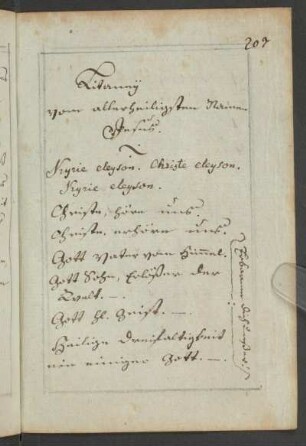 203
Litaneÿ
vom allerheiligsten Namen
Jesus.
Kyrie eleyson. Christe eleyson.
Kyrie eleyson.
Christe, höre uns
Christe, erhöre uns.
Gott Vater vom Himmel.
Gott Sohn, Erlößer der
Welt. —
Gott hl. Geist. —
Heilige Dreifaltigkeit
ein einiger Gott. —
Erbarme dich unser!